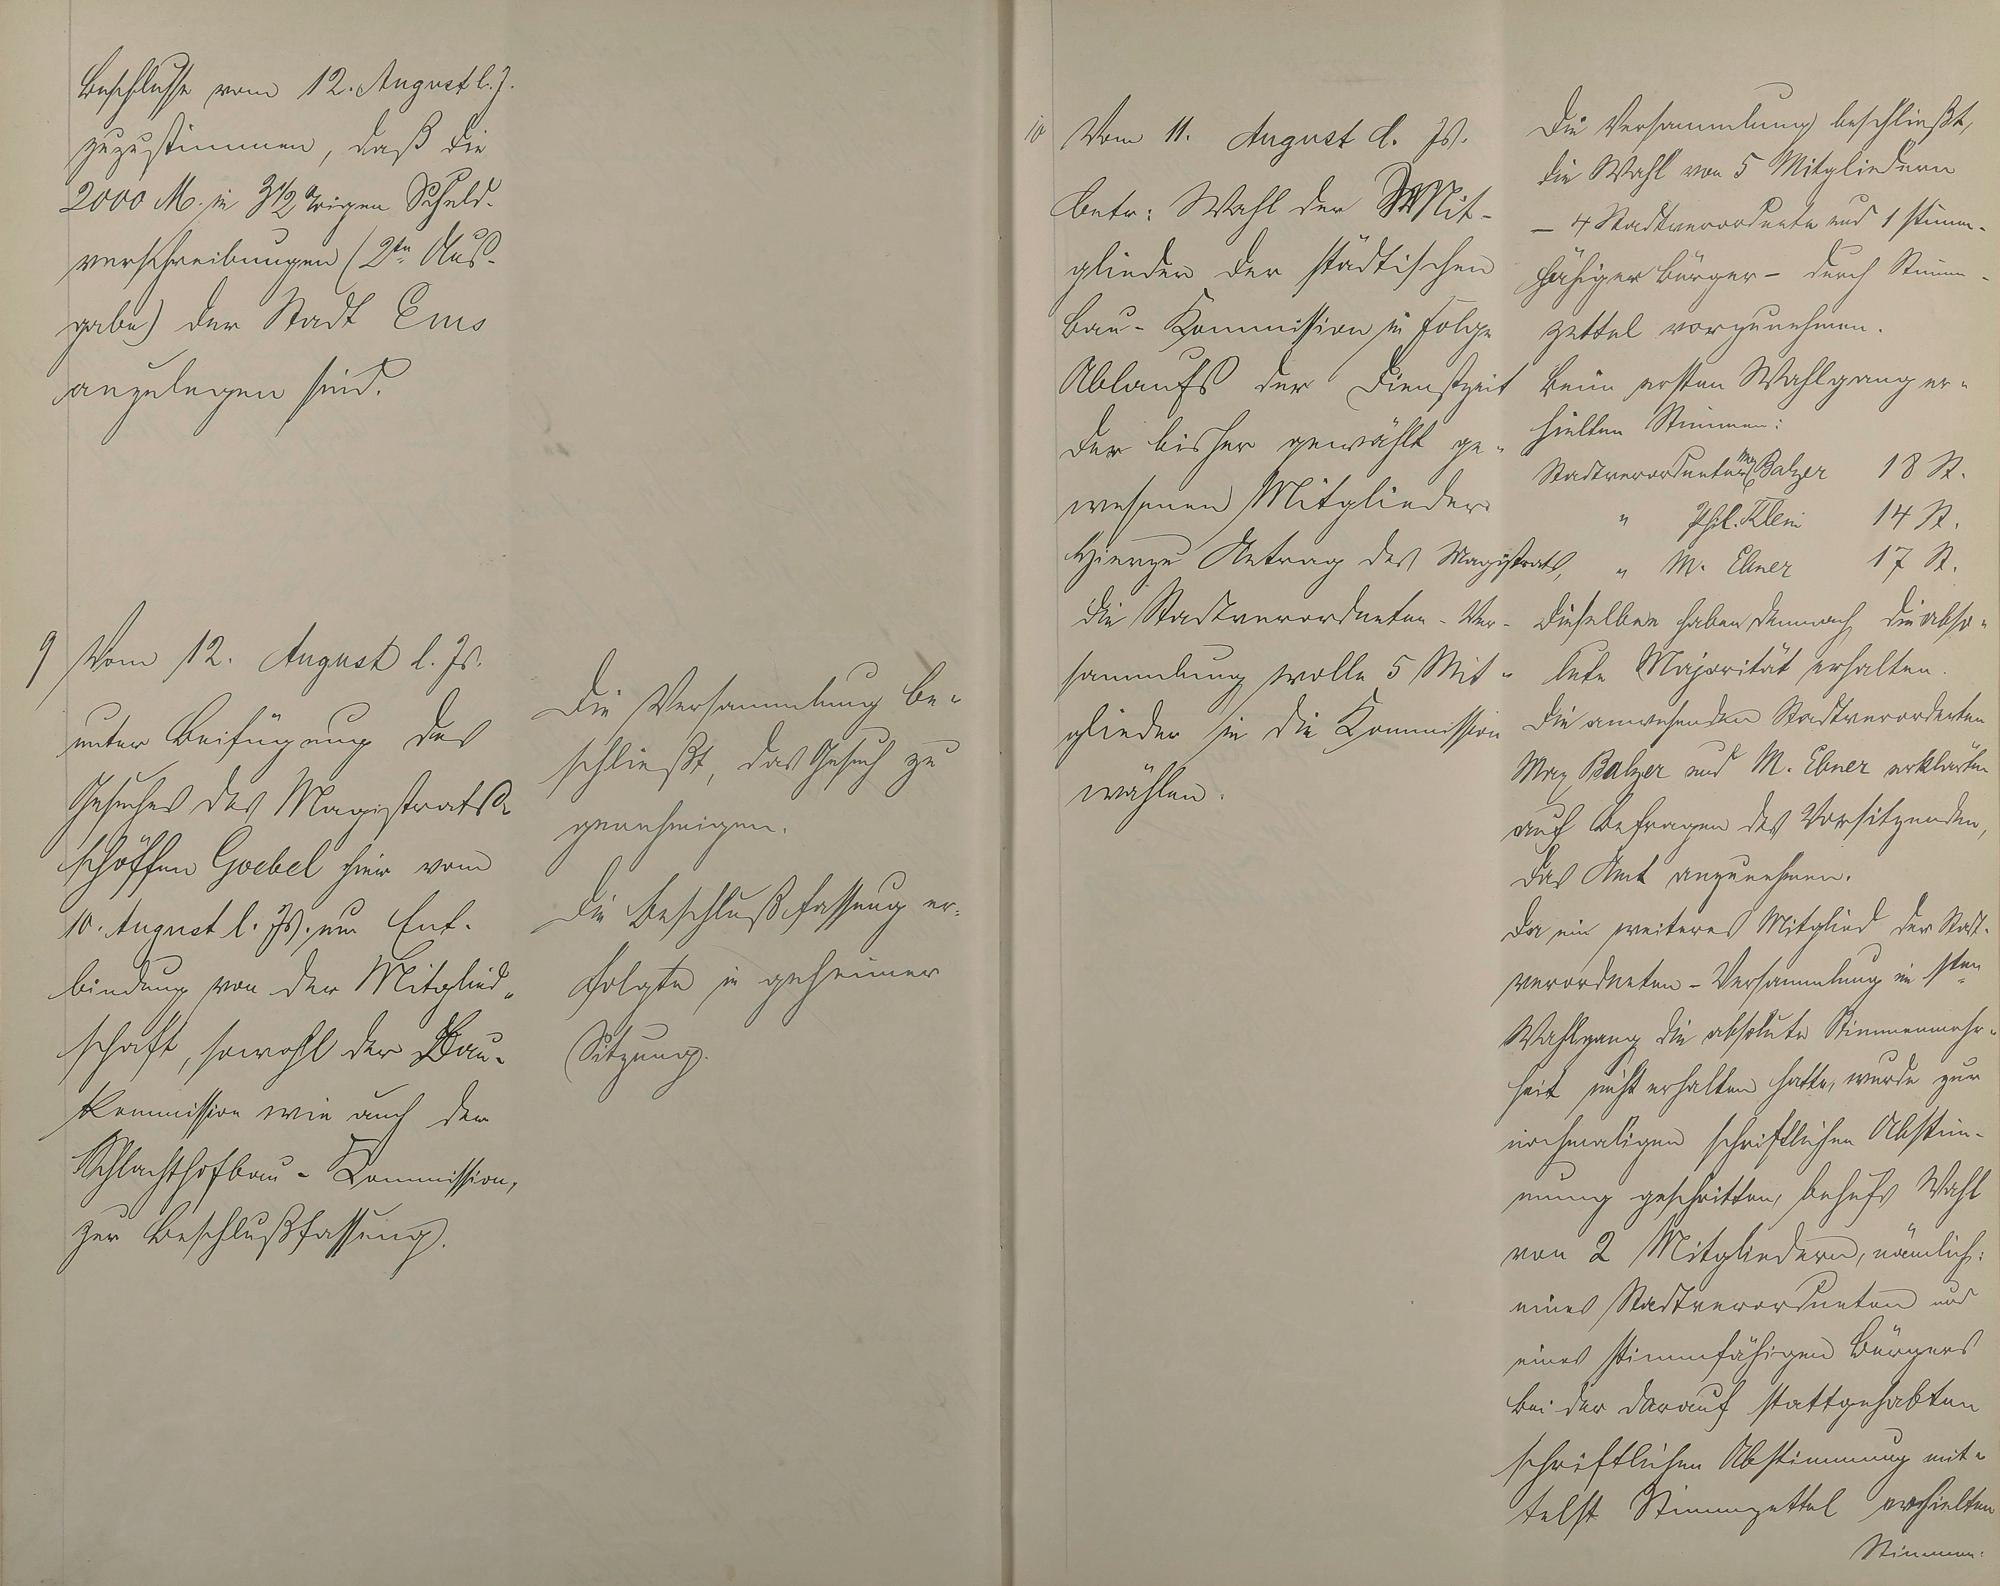 Beschlusse vom 12. August l. J.
zuzustimmen, daß die
2000 M. in 3½ %igen Schuld-
verschreibungen (2te Aus-
gabe) der Stadt Ems
anzulegen sind.
9 Vom 12. August l. Js.
unter Beifügung des
Gesuches des Magistrats-
schöffen Goebel hier vom
10. August l. Js. um Ent-
bindung von der Mitglied-
schaft, sowohl der Bau-
kommission wie auch der
Schlachthofbau-Kommission,
zur Beschlußfassung.
Die Versammlung be-
schließt, das Gesuch zu
genehmigen.
Die Beschlußfassung er-
folgte in geheimer
Sitzung.
10 Vom 11. August d. Js.
betr: Wahl der Mit-
glieder der städtischen
Bau-Kommission in Folge
Ablaufs der Dienstzeit
der bisher gewählt ge-
wesenen Mitglieder
Hierzu Antrag des Magistrats,
die Stadtverordneten-Ver-
sammlung wolle 5 Mit-
glieder in die Kommission
wählen.
Die Versammlung beschließt,
die Wahl von 5 Mitgliedern
– 4 Stadtverordnete und 1 stimm-
fähiger Bürger – durch Stimm-
zettel vorzunehmen.
Beim ersten Wahlgang er-
hielten Stimmen:
Stadtverordneter Max Balzer 18 St.
" Phil. Klein 14 St.
" M. Ebner 17 St.
Dieselben haben demnach die abso-
lute Majorität erhalten.
Die anwesenden Stadtverordneten
Max Balzer und M. Ebner erklärten
auf Befragen des Vorsitzenden,
das Amt anzunehmen.
Da ein weiteres Mitglied der Stadt-
verordneten-Versammlung im 1sten
Wahlgang die absolute Stimmenmehr-
heit nicht erhalten hatte, wurde zur
nochmaligen schriftlichen Abstim-
mung geschritten, behufs Wahl
von 2 Mitgliedern, nämlich:
eines Stadtverordneten und
eines stimmfähigen Bürgers
Bei der darauf stattgehabten
schriftlichen Abstimmung mit-
telst Stimmzettel erhielten
Stimmen: